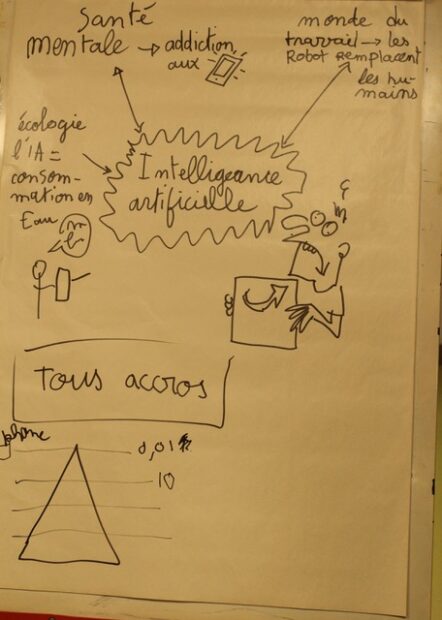 santé
mentale → addiction
aux
monde du
travail → les
Robot remplacent
les hu-
mains
écologie
l'IA =
consom-
mation en
Eau
Intelligeance
artificielle
tous accros
0,01
10